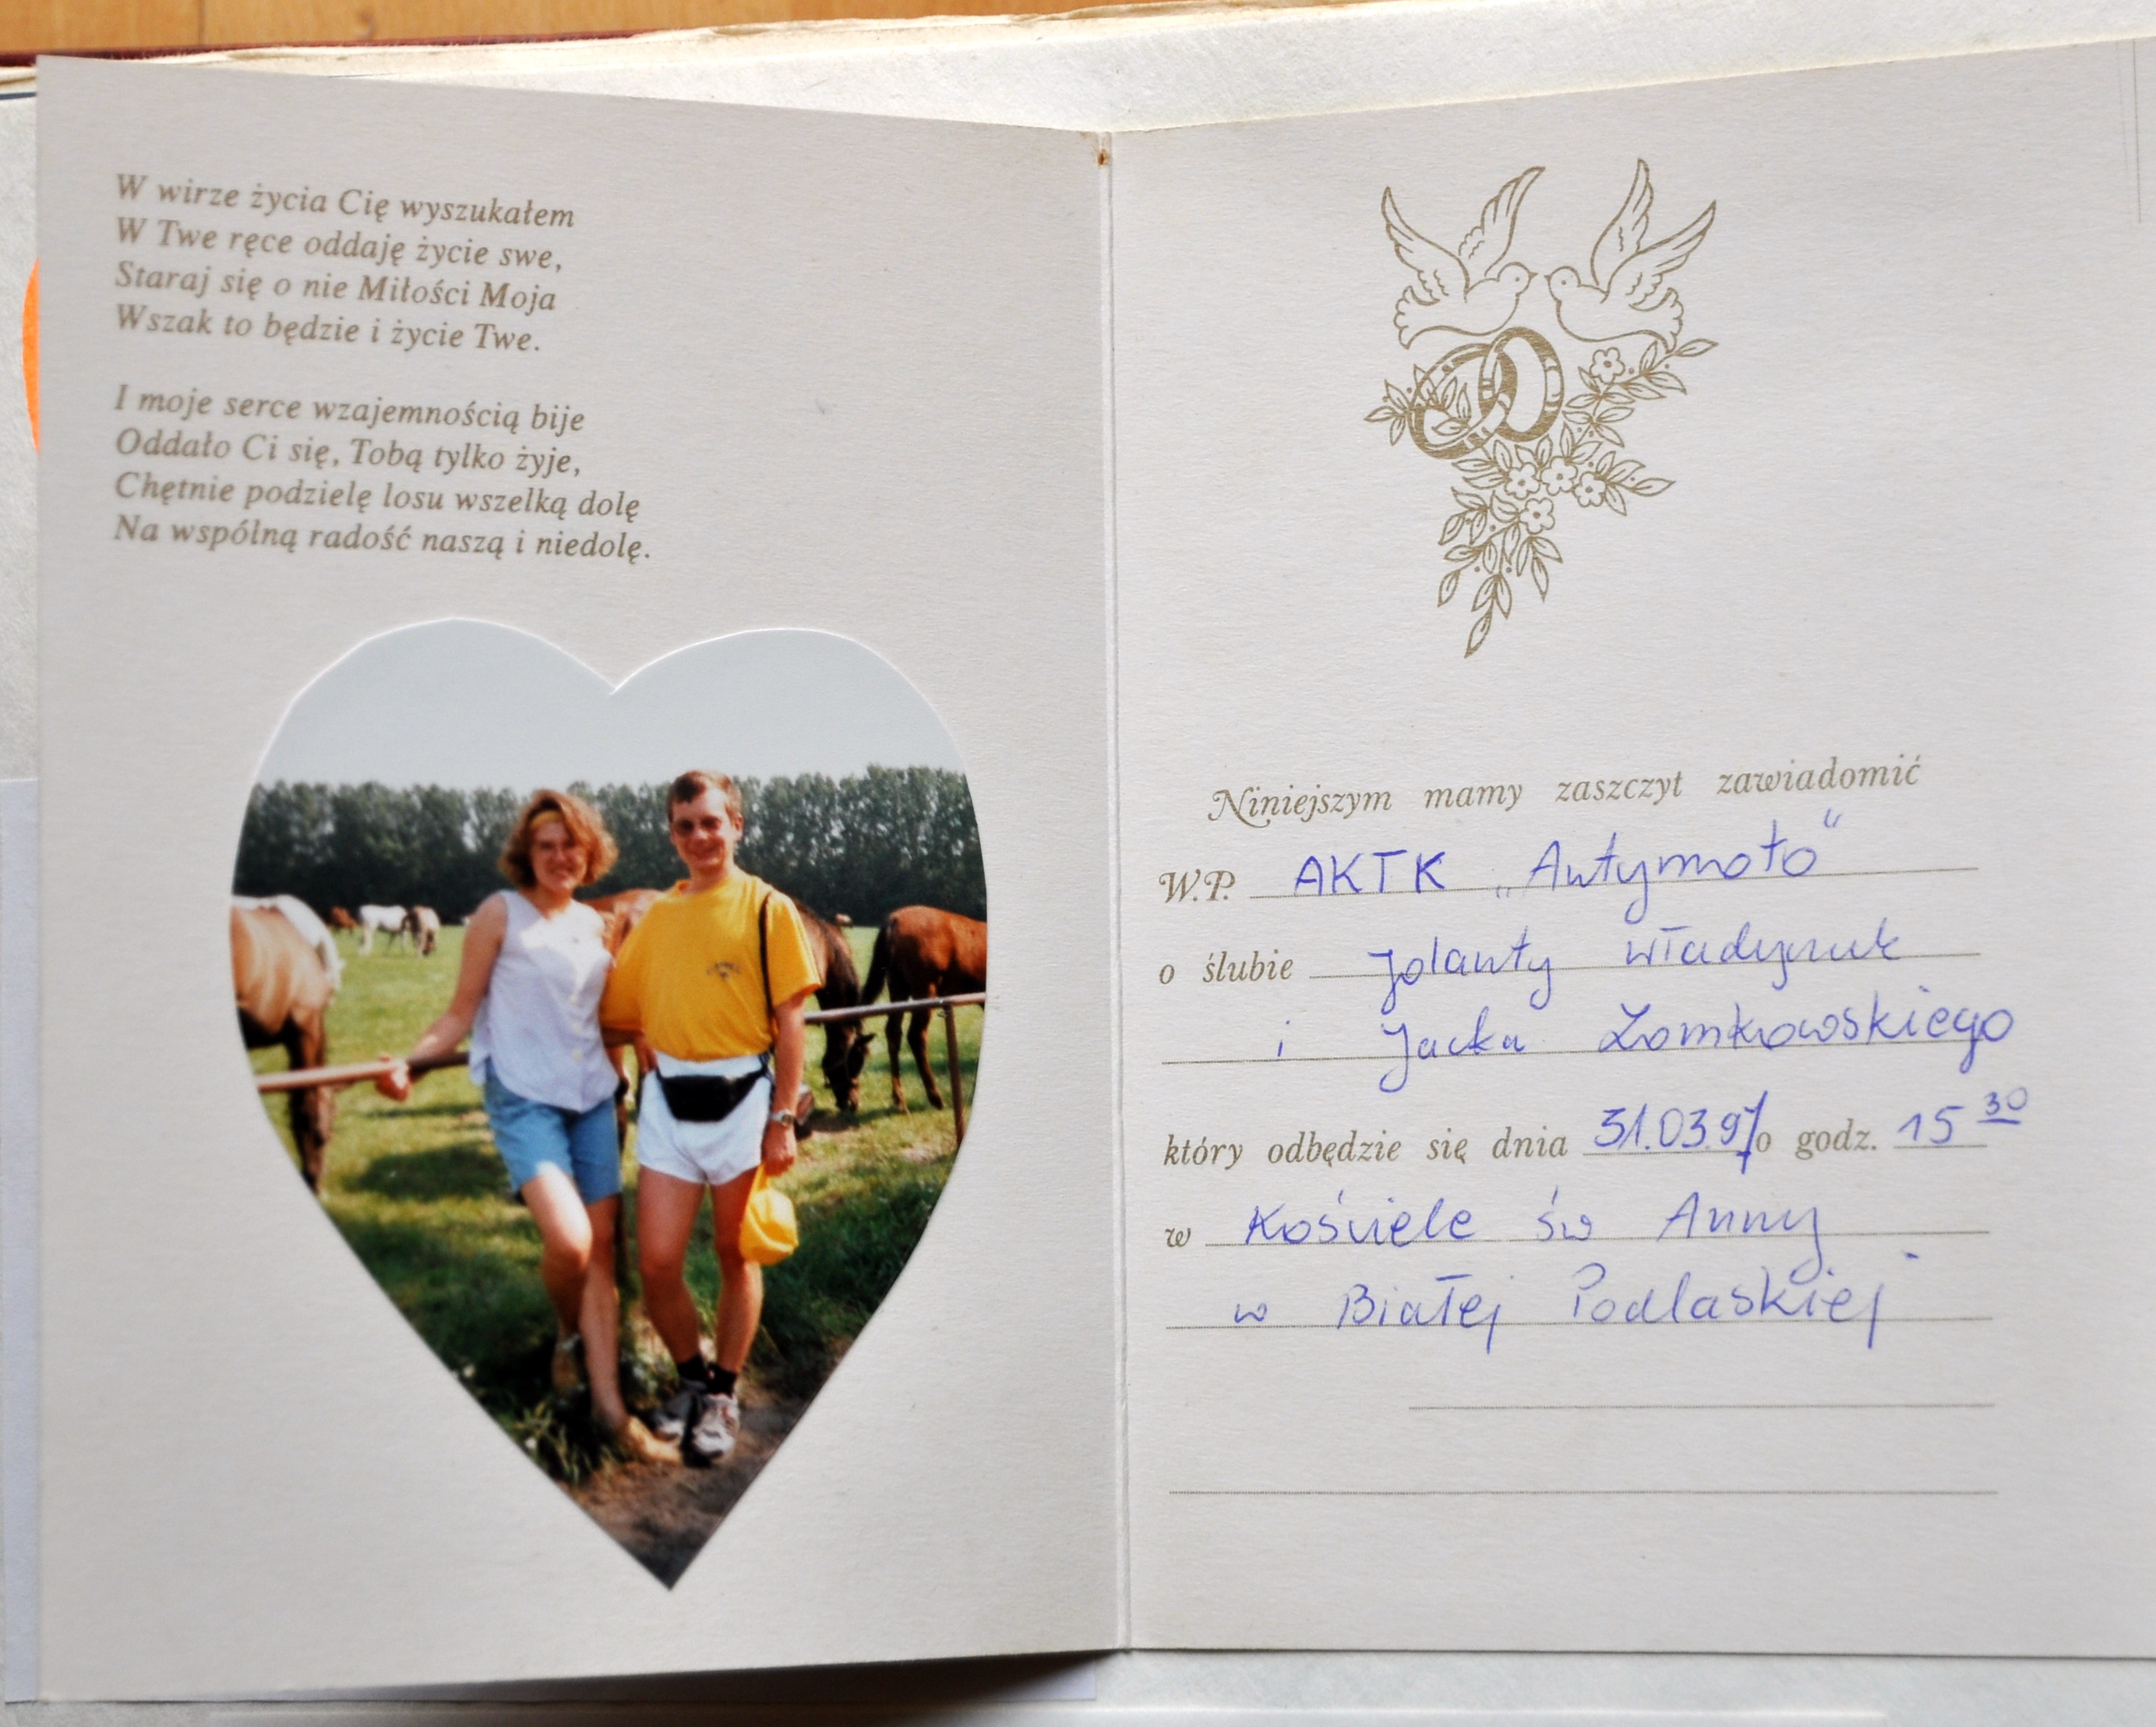 W wirze życia Cię wyszukałem
W Twe ręce oddaję życie swe,
Staraj się o nie Miłości Moja
Wszak to będzie i życie Twe.
I moje serce wzajemnością bije
Oddało Ci się, Tobą tylko żyje,
Chętnie podzielę losu wszelką dolę
Na wspólną radość naszą i niedolę.
Niniejszym mamy zaszczyt zawiadomić
W.P. AKTK „Antymoto"
o ślubie Jolanty
i Jacka Łomkowskiego
który odbędzie się dnia 31.03.97 o godz. 15 30
w Kościele św Anny
w Białej Podlaskiej